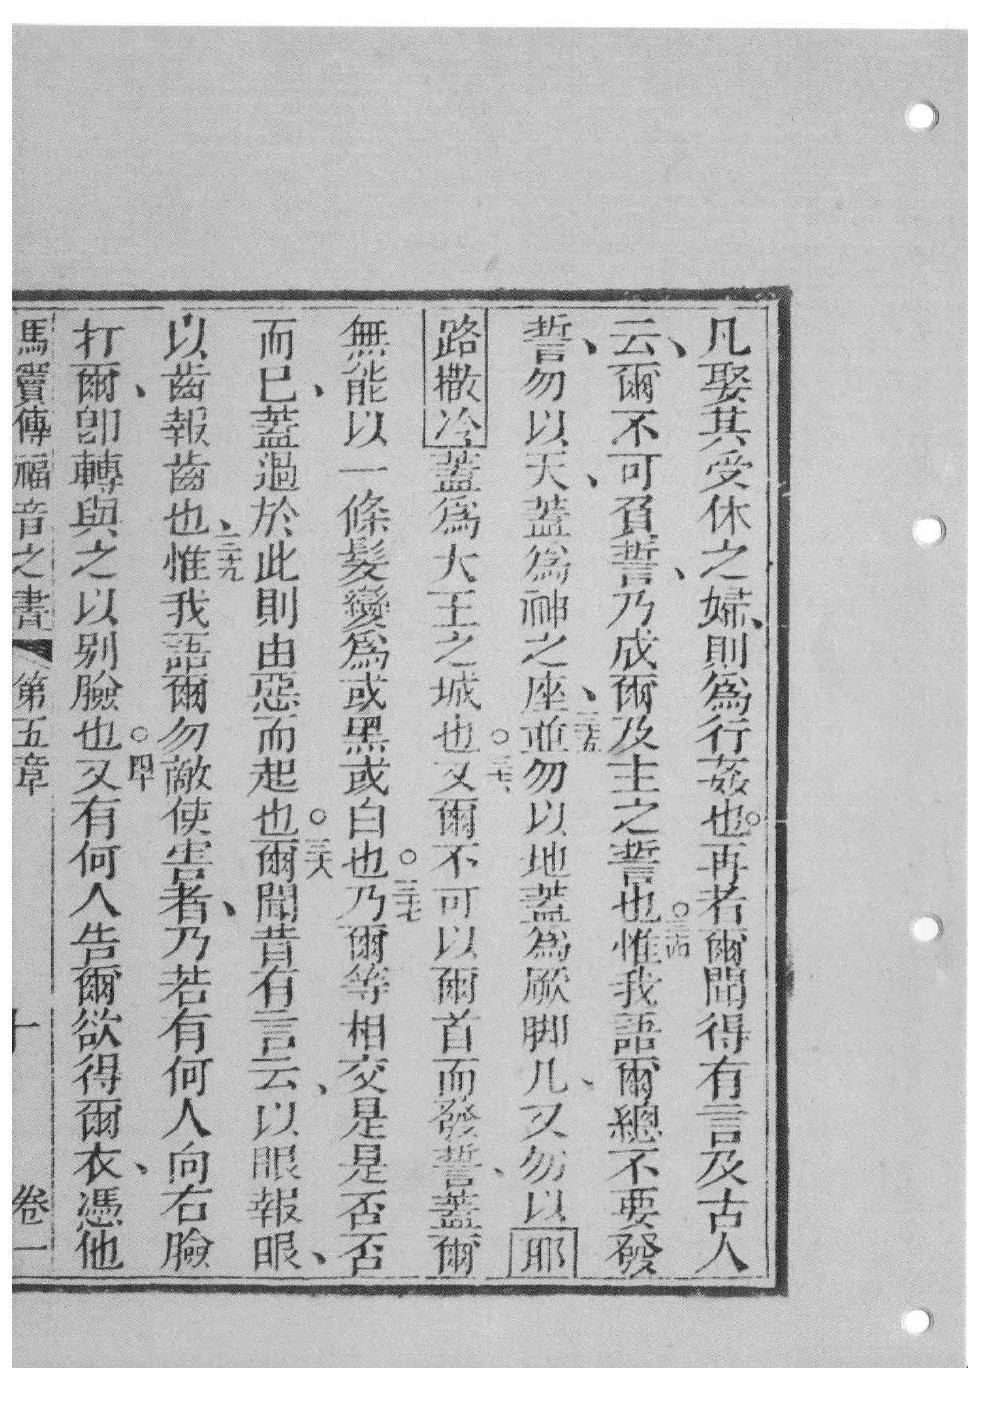 凡娶其受休之婦、則為行姦也○再者爾聞得有言及古人
云、爾不可負誓、乃成爾及主之誓也○三四惟我語爾總不要發
誓、勿以天、蓋為神之座、三五並勿以地蓋為厥脚几、又勿以耶
路撒冷蓋為大王之城也○三六、又爾不可以爾首而發誓、蓋爾
無能以一條髮變為或黑或白也○三七乃爾等相交是是否否
而已、蓋過於此則由惡而起也○三八爾聞昔有言云、以眼報眼、
以齒報齒也、三九惟我語爾勿敵使害者、乃若有何人向右臉
打爾、卽轉與之以別臉也○四十又有何人告爾欲得爾衣、憑他
馬竇傳福音之書 第五章 十 卷一